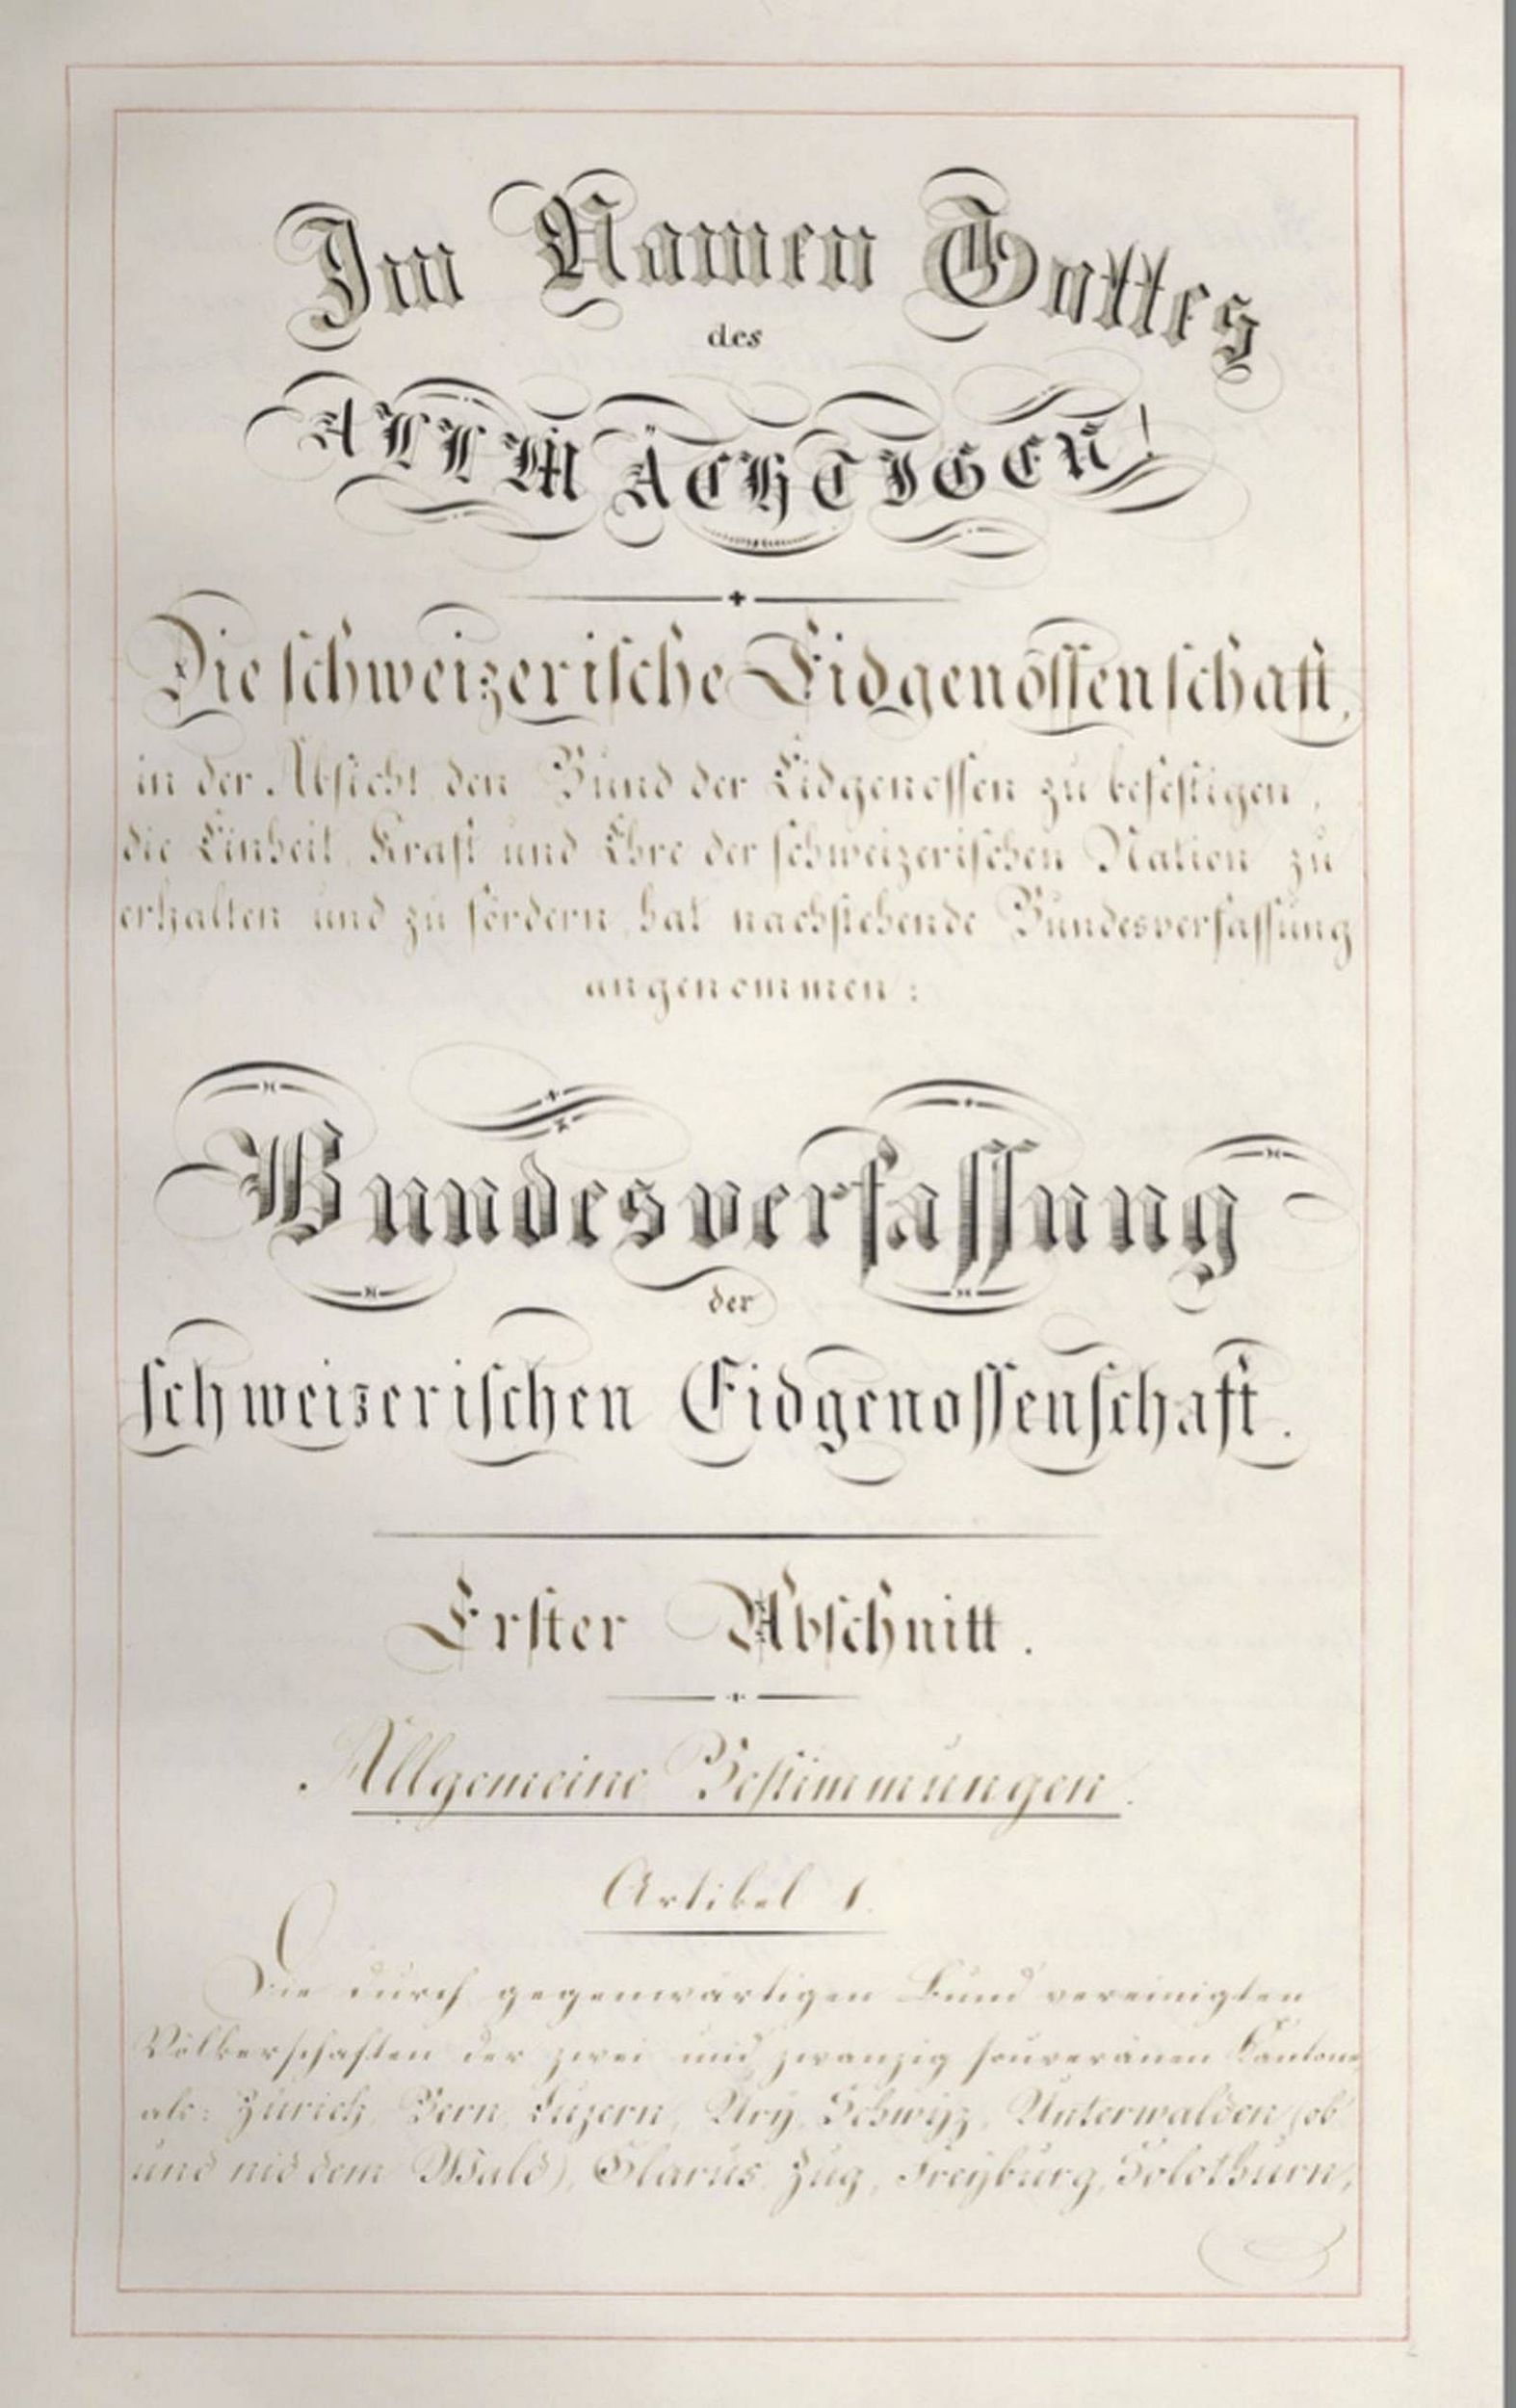 Im Namen Gottes
des
ALLMÄCHTIGEN!
Die schweizerische Eidgenossenschaft,
in der Absicht, den Bund der Eidgenossen zu befestigen,
die Einheit, Kraft und Ehre der schweizerischen Nation zu
erhalten und zu fördern, hat nachstehende Bundesverfassung
angenommen:
Bundesverfassung
der
schweizerischen Eidgenossenschaft.
Erster Abschnitt.
Allgemeine Bestimmungen.
Artikel 1.
Die durch gegenwärtigen Bund vereinigten
Völkerschaften der zwei und zwanzig souveränen Kantone
als: Zürich, Bern, Luzern, Ury, Schwyz, Unterwalden (ob
und nid dem Wald), Glarus, Zug, Freyburg, Solothurn,